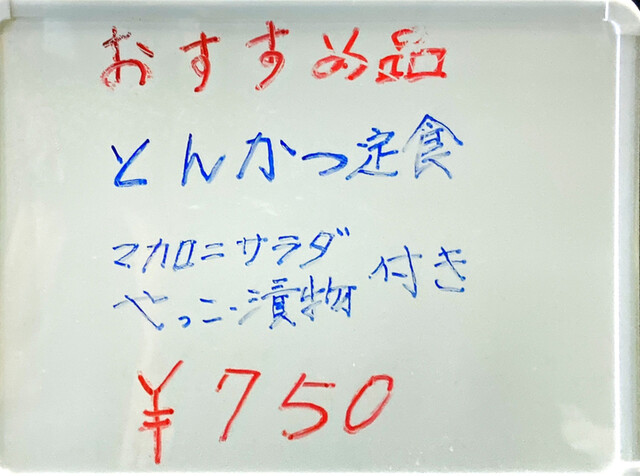 おすすめ品
とんかつ定食
マカロニサラダ
やっこ・漬物 付き
¥750